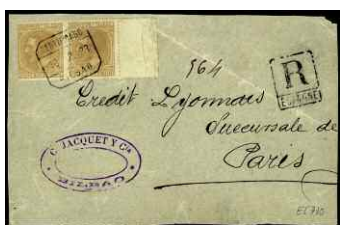 964
R
ESPAGNE
Credit Lyonnais
Succursale de
Paris
C. JACQUET Y Cia
BILBAO